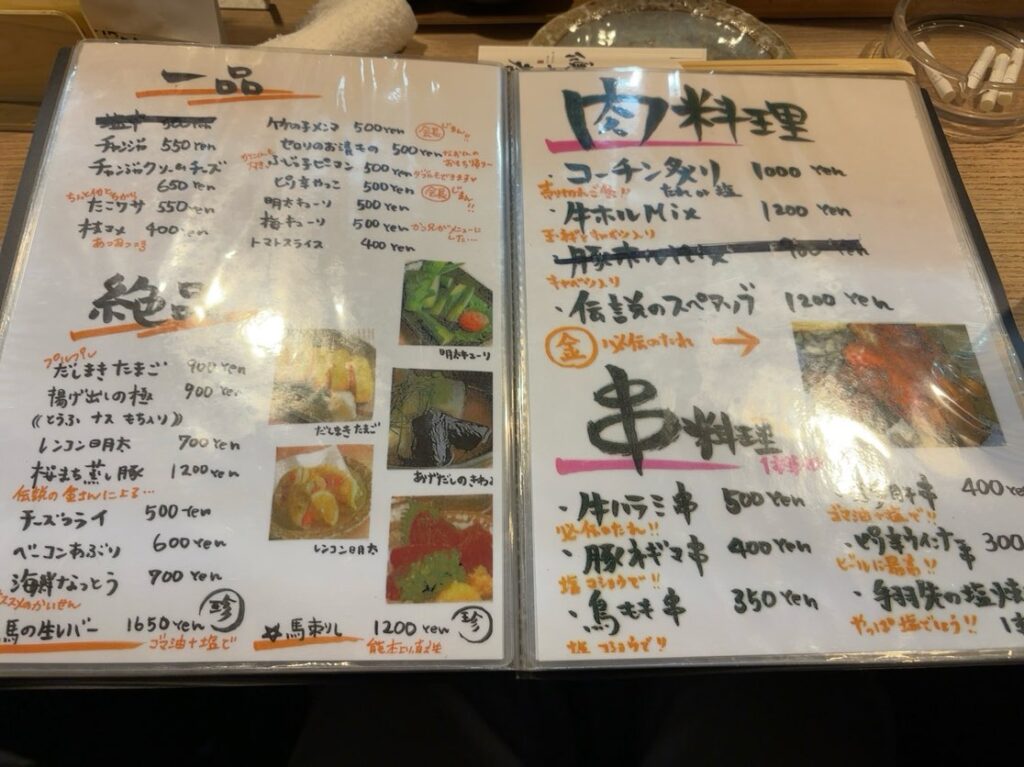 一品
チャンジャ 550yen
チャンジャクリームチーズ
650yen
たこワサ 550yen
枝マメ 400yen
竹の子メンマ 500yen
セロリのお漬もの 500yen
ふじ子ピマン 500yen
ピリ辛やっこ 500yen
明太キューリ 500yen
梅キューリ 500yen
トマトスライス 400yen
絶品
プルプル
だしまきたまご 900yen
揚げ出しの極 900yen
《とうふ ナス もち入り》
レンコン明太 700yen
桜まち蒸し豚 1200yen
伝説の金さんによる…
チーズフライ 500yen
ベーコンあぶり 600yen
海鮮なっとう 900yen
馬の生レバー 1650yen 珍
ゴマ油+塩で
☆馬刺し 1200yen 珍
明太キューリ
だしまきたまご
あげだしのきわみ
レンコン明太
肉料理
コーチン炙り 1000yen
たれor塩
・牛ホルMix 1200yen
キャベツ入り
・伝説のスペアリブ 1200yen
金 必伝のたれ →
串料理
・牛ハラミ串 500yen
必伝のたれ!!
・豚ネギマ串 400yen
塩コショウで!!
・鳥もも串 350yen
塩コショウで!!
串 400ye
ゴマ油で塩で!!
・ピリ辛ウインナー串 300
ビールに最高!!
・手羽先の塩焼
やっぱ塩でしょう!!